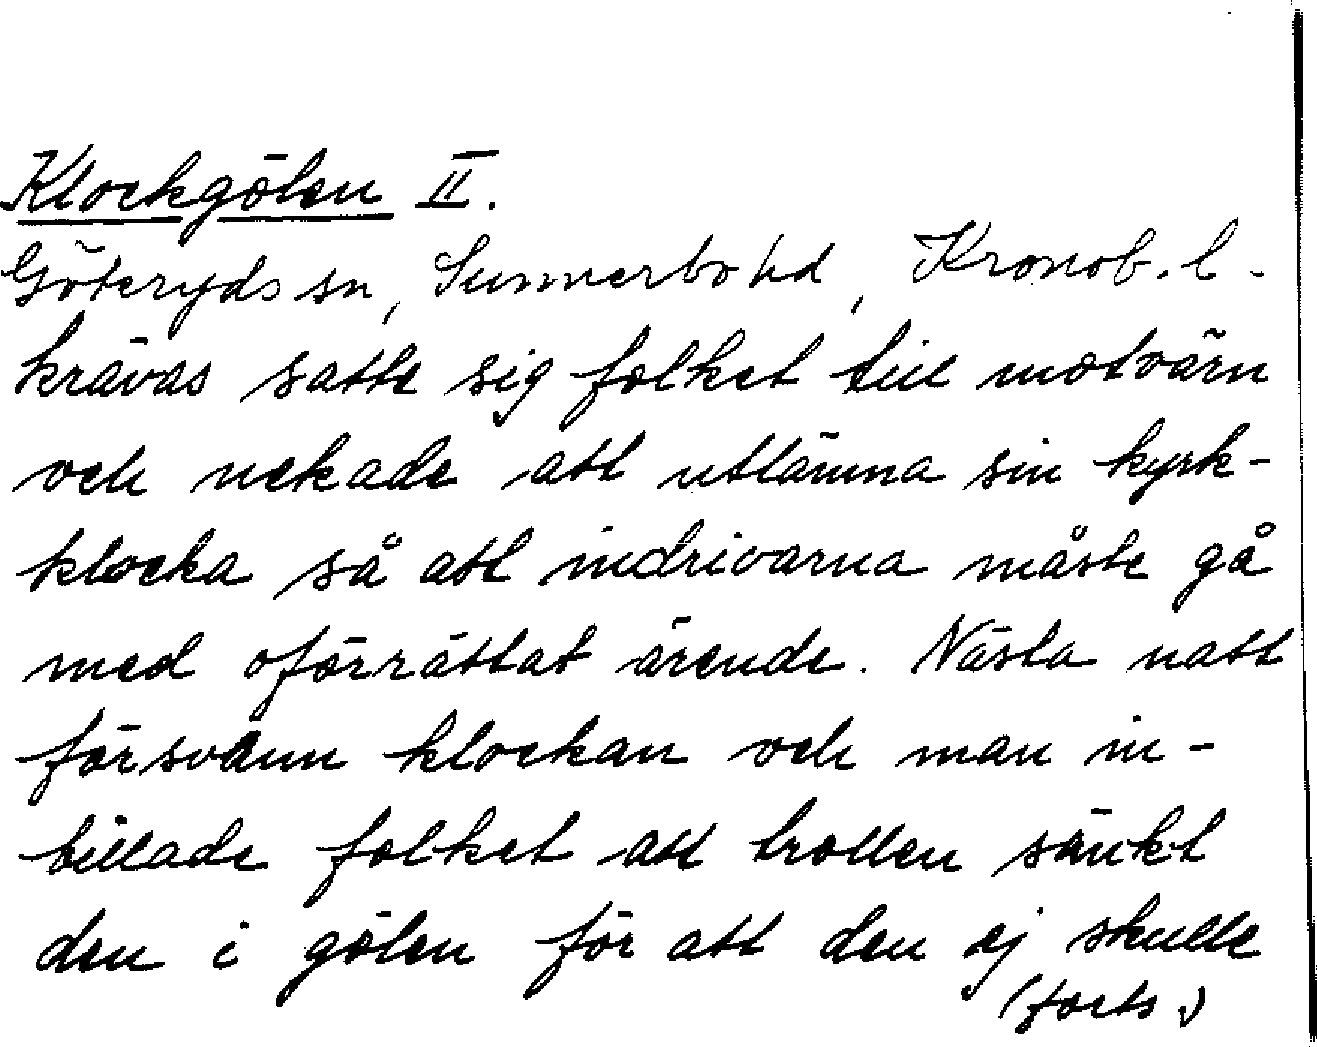 Klockgölen II.
Göteryds sn, Sunnerbo hd, Kronob. l.
krävas satte sig folket till motvärn
och nekade att utlämna sin kyrk-
klocka så att indrivarna måste gå
med oförrättat ärende. Nästa natt
försvann klockan och man in-
billade folket att trollen sänkt
den i gölen för att den ej skulle
(forts.)